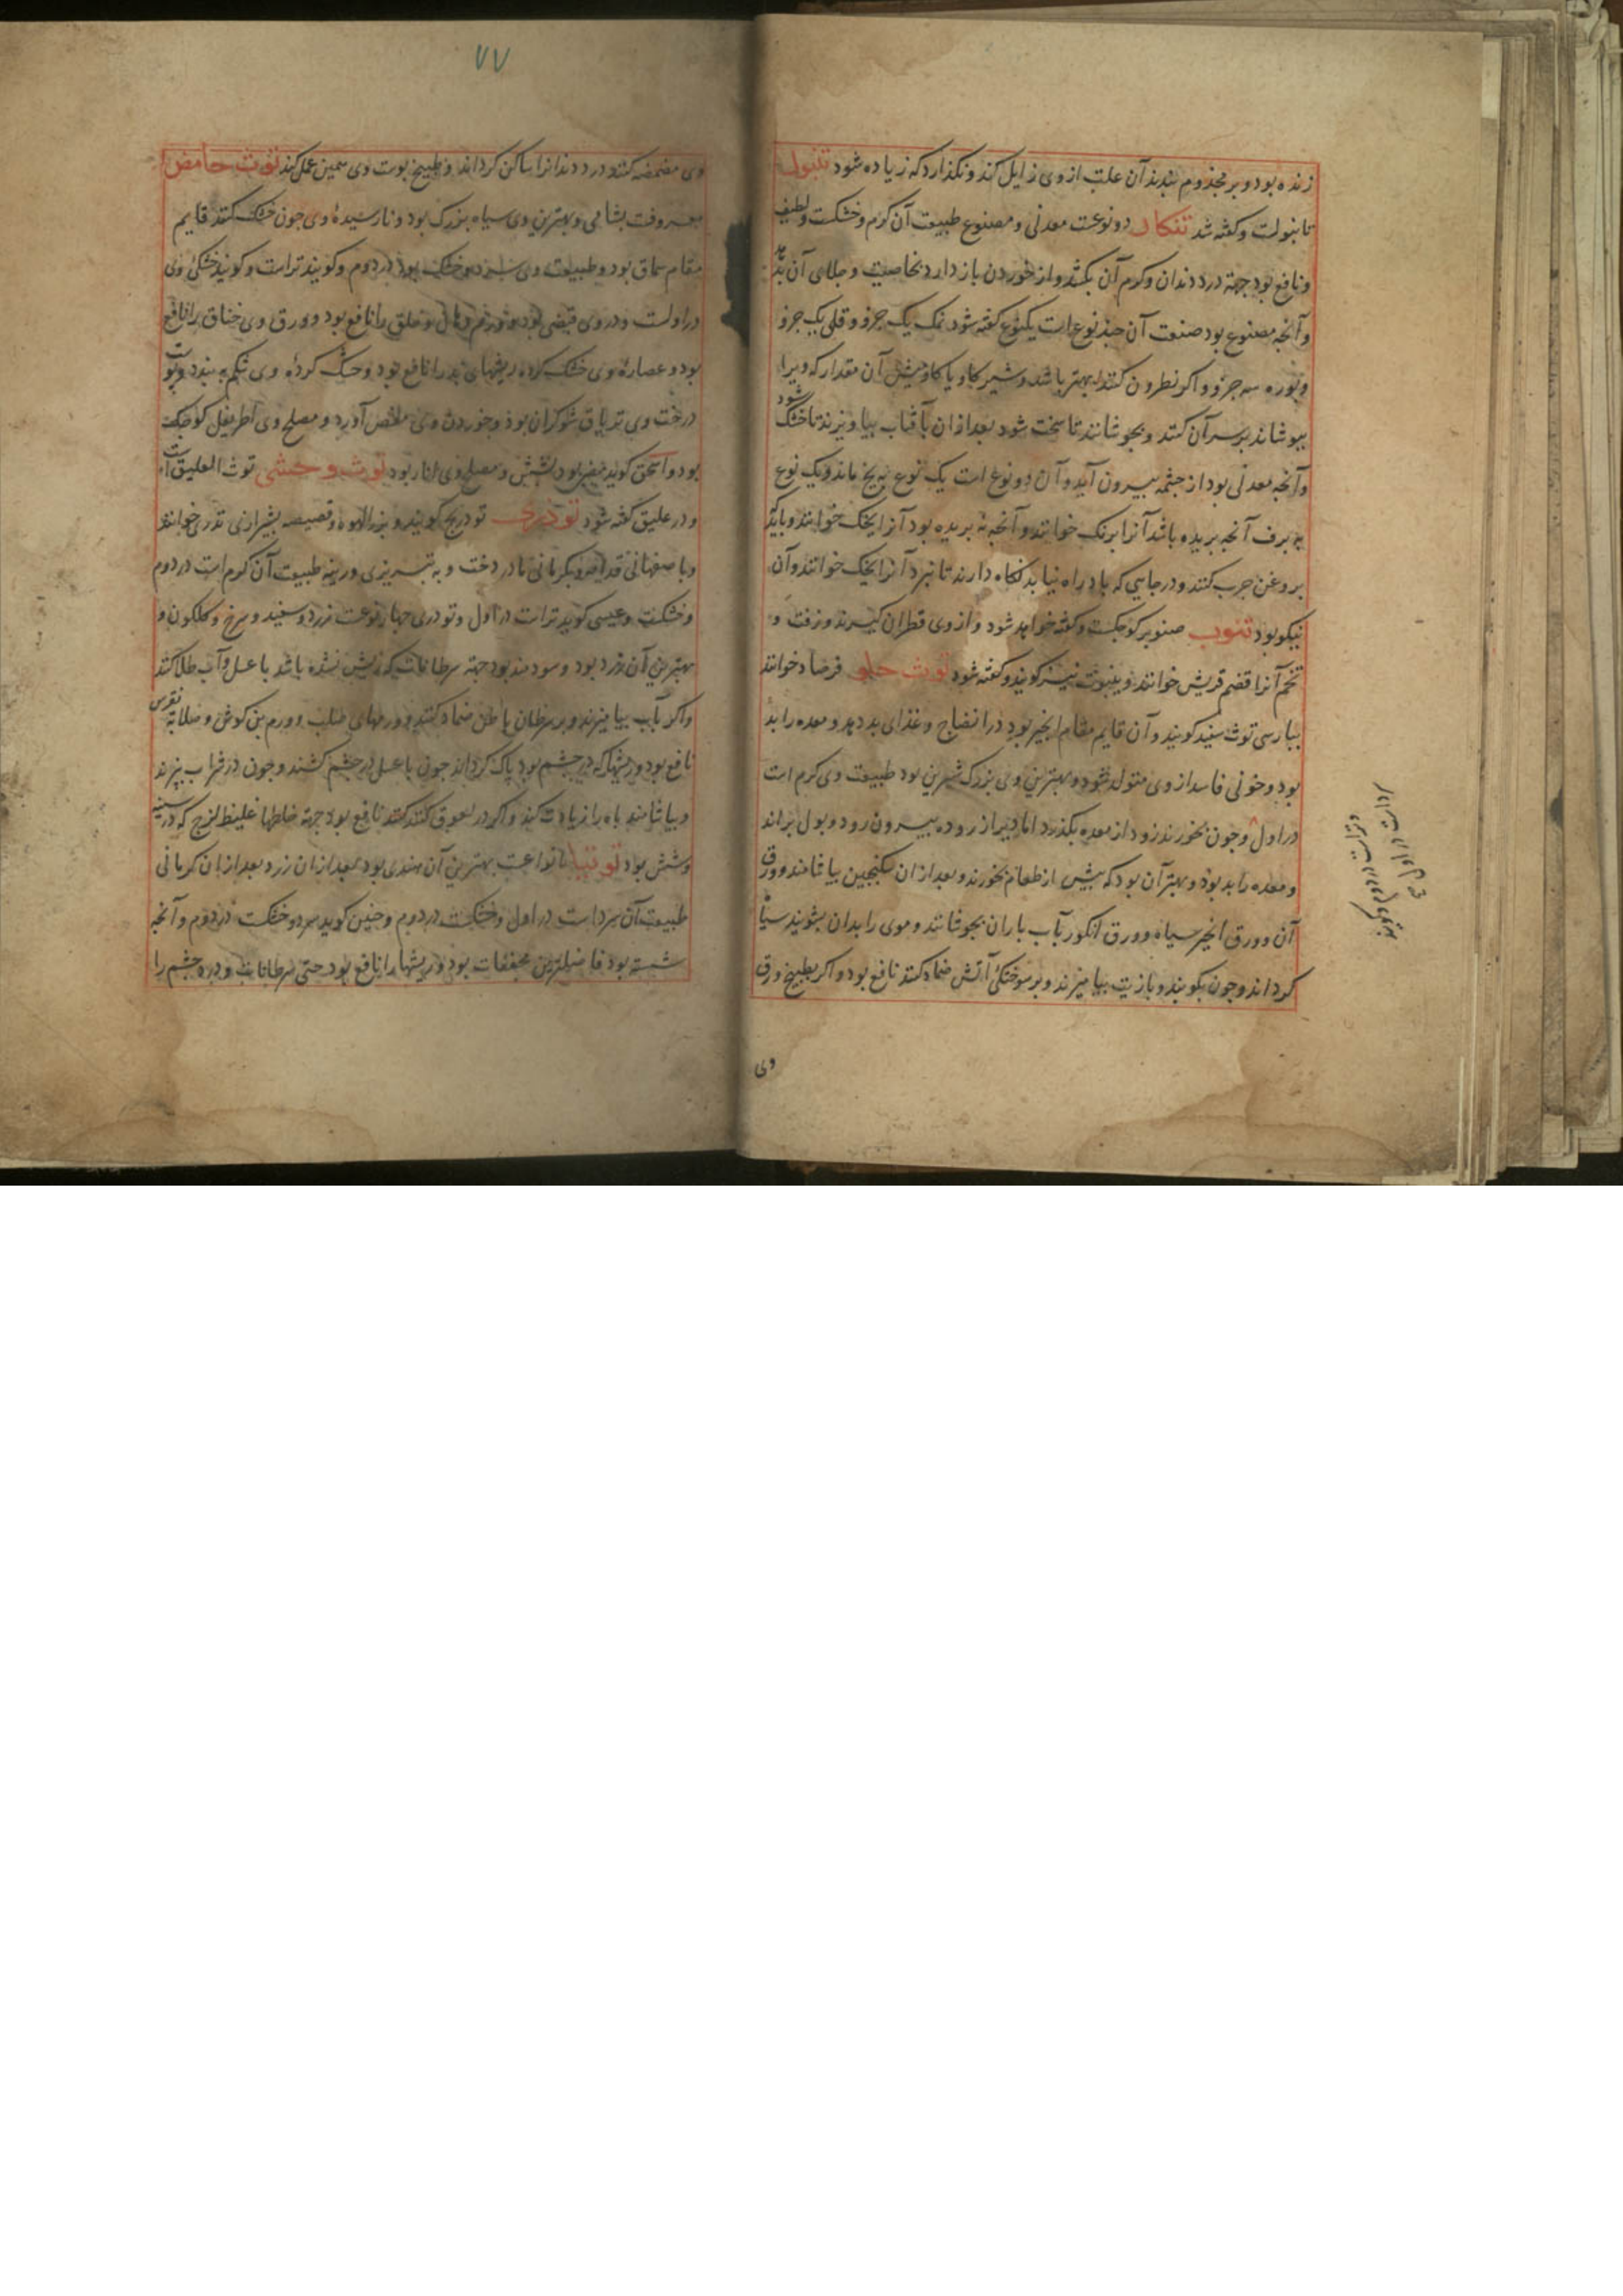 زنده بود و بر مجذوم بندند آن علت از وی زایل کند و نکذارد که زیاده شود تنبول
تانبولت و کفته شد تنکار دو نوعست معدنی و مصنوع طبیعت آن کرم و خشکست و لطیف
و نافع بود جهة درد دندان و کرم آن بکشد و از خوردن باز دارد بخاصیت و جلای آن بدهد
و آنجه مصنوع بود صنعت آن جند نوع است یکنوع کفته شود نمک یک جزو و قلی یک جزو
و بوره سه جزو و اکر نطرون کنند بهتر باشد و شیر کاو یا کاومیش آن مقدار که ویرا
بپوشاند بر سر آن کنند و بجوشانند تا سخت شود بعد از ان بآفتاب بیاویزند تا خشک شود
و آنجه معدنی بود از جشمه بیرون آید و آن دو نوع است یک نوع به یخ ماند و یک نوع
به برف آنجه بریده باشد آنرا برنک خوانند و آنجه نه بریده بود آنرا یخک خوانند و باید
بروغن جرب کنند و در جایی که باد راه نیابد نکاه دارند تا نبرد آنرا یخک خوانند و آن
نیکو بود تنوب صنوبر کوجکست و کفته خواهد شود و از وی قطران کیرند و زفت و
تخم آنرا قضم قریش خوانند و ینبوت نیز کویند و کفته شود توث حلو فرصاد خوانند
بپارسی توث سفید کویند و آن قایم مقام انجیر بود در انضاج و غذای بد دهد و معده را بد
بود و خونی فاسد از وی متولد شود و بهترین وی بزرک شیرین بود طبیعت وی کرم است
در اول و جون بخورند زود از معده بکذرد اما دیر از روده بیرون رود و بول براند
و معده را بد بود و بهتر آن بود که بیش از طعام بخورند و بعد از ان سکنجبین بیاشامند و ورق
آن و ورق انجیر سیاه و ورق انکور بآب باران بجوشانند و موی را بدان بشویند سیاه
کرداند و جون بکوبند و بازیت بیامیزند و بر سوختکی آتش ضماد کنند نافع بود و اکر بطبیخ ورق
وی
٧٧
وی مضمضه کنند درد دندانرا ساکن کرداند و طبیخ بوست وی همین عمل کند توث حامض
معروفست بشامی و بهترین وی سیاه بزرک بود و نارسیدهٔ وی جون خشک کنند قایم
مقام سماق بود و طبیعت وی سرد و خشک بود در دوم و کویند تر است و کویند خشکی وی
در اولست و در وی قبضی بود و ورم دهان و حلق را نافع بود و ورق وی خناق را نافع
بود و عصارهٔ وی خشک کرده ریشهای بد را نافع بود و خشک کردهٔ وی شکم به بندد و بوست
درخت وی تریاق شوکران بود و خوردن وی مغص آورد و مصلح وی اطریفل کوجکست
بود و اسحق کوید مضر بود بشش و مصلح وی انار بود توث وحشی توث العلیق است
و در علیق کفته شود تودری تودریج کویند و بزر الهوه و قصیصه بشیرازی تدری خوانند
و باصفهانی قدامه و بکرمانی مادر دخت و به تبریزی ورینه طبیعت آن کرم است در دوم
و خشکست و عیسی کوید تر است در اول و تودری جهار نوعست زرد و سفید و سرخ و کلکون و
بهترین آن زرد بود و سودمند بود جهة سرطانات که ریش نشده باشد با عسل و آب طلا کنند
و اکر بآب بیامیزند و بر سرطان باطن ضماد کنند و ورمهای صلب و ورم بن کوش و صلابة نقرس
نافع بود و ریشها که در جشم بود پاک کرداند جون با عسل در جشم کشند و جون در شراب بپزند
و بیاشامند باه را زیادت کند و اکر در لعوق کنند نافع بود جهة خلطها غلیظ لزج که در سینه
و شش بود توتیا بانواعست بهترین آن هندی بود بعد از ان زرد بعد از ان کرمانی
طبیعت آن سرد است در اول و خشکست در دوم و حنین کوید سرد و خشکست در دوم و آنجه
شسته بود فاضلترین مجففات بود و ریشها را نافع بود حتی سرطانات و درد جشم را